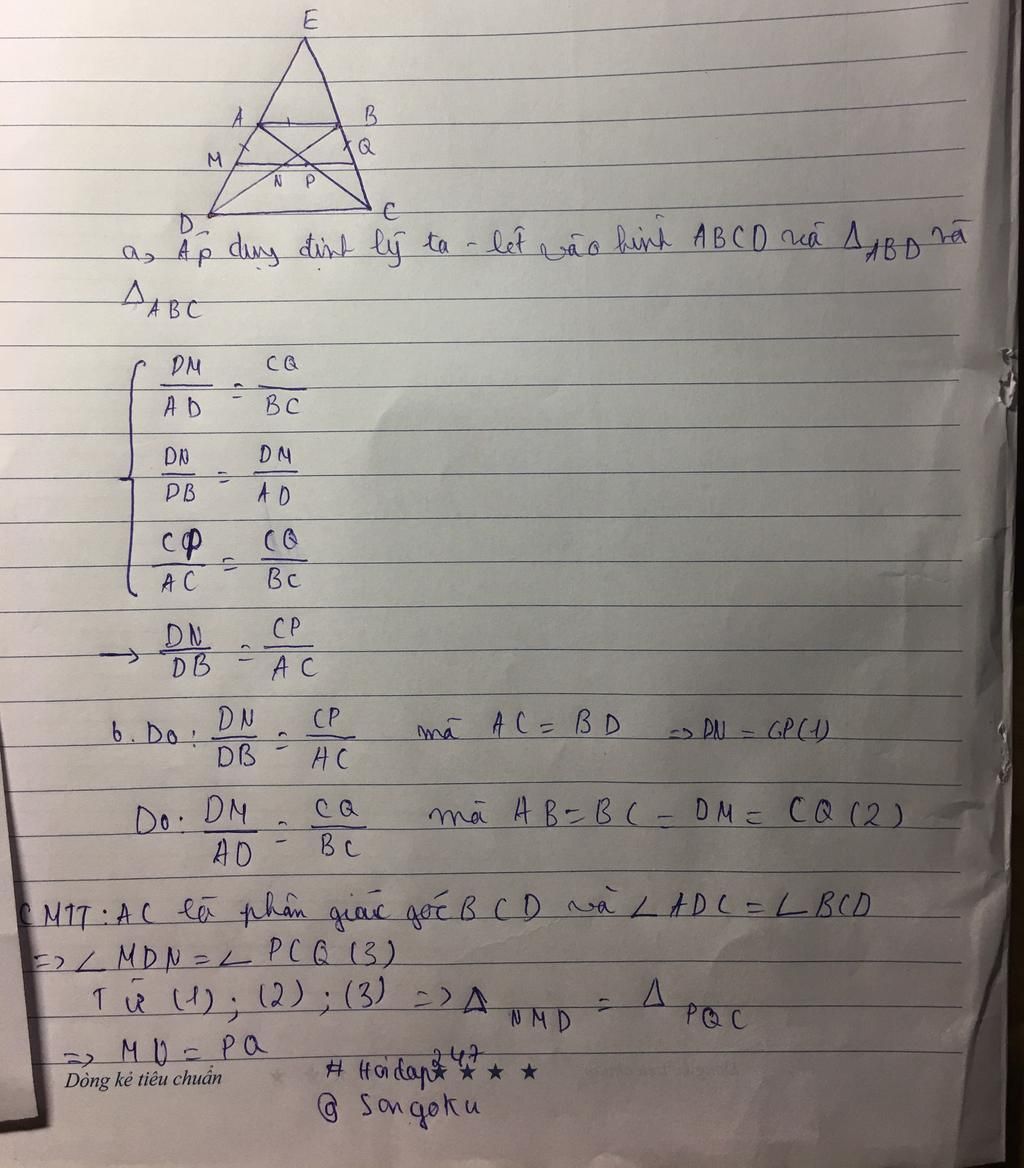 E
A B
M Q
N P
D C
a, Áp dụng định lý ta-lét vào hình ABCD và Δ ABD và
Δ ABC
DM/AD = CQ/BC
DN/DB = DM/AD
CP/AC = CQ/BC
→ DN/DB = CP/AC
b. Do: DN/DB = CP/AC mà AC = BD => DN = CP(1)
Do: DM/AD = CQ/BC mà AB = BC = DM = CQ (2)
CMTT: AC là phân giác góc BCD và ∠ADC = ∠BCD
=> ∠MDN = ∠PCQ (3)
Từ (1); (2); (3) => Δ NMD = Δ PQC
=> MN = PQ
Dòng kẻ tiêu chuẩn ★ ★ ★ ★
# Hoidap247
@ Songoku